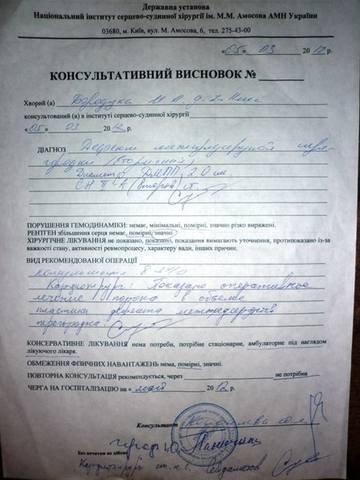 Державна установа
Національний інститут серцево-судинної хірургії ім. М.М. Амосова АМН України
03680, м. Київ, вул. М. Амосова, 6, тел. 275-43-00
«05» 03 2012р.
КОНСУЛЬТАТИВНИЙ ВИСНОВОК №
Хворий (а)
консультований в інституті серцево-судинної хірургії
«05» 03 2012р.
ДІАГНОЗ Дефект
(вторичный)
Диаметр ДМПП 2,0 см.
СН II А
ПОРУШЕННЯ ГЕМОДИНАМІКИ: немає, мінімальні, помірні, значні різко виражені.
РЕНТГЕН збільшення серця немає, помірні, значні
ХІРУРГІЧНЕ ЛІКУВАННЯ не показано, показано, показання вимагають уточнення, протипоказано із-за
важкості стану, активності ревмопроцесу, характеру вади, інших причин.
ВИД РЕКОМЕНДОВАНОЇ ОПЕРАЦІЇ
Кардиохирург: Показано оперативное
лечение порока в объеме
пластики дефекта межпредсердной
перегородки
КОНСЕРВАТИВНЕ ЛІКУВАННЯ нема потреби, потрібне стаціонарне, амбулаторне під наглядом
лікуючого лікаря.
ОБМЕЖЕННЯ ФІЗИЧНИХ НАВАНТАЖЕНЬ нема, помірні, значні.
ПОВТОРНА КОНСУЛЬТАЦІЯ рекомендується, через не потрібне
ЧЕРГА НА ГОСПІТАЛІЗАЦІЮ на « 2012р.
Консультант
Без печатки не дійсне